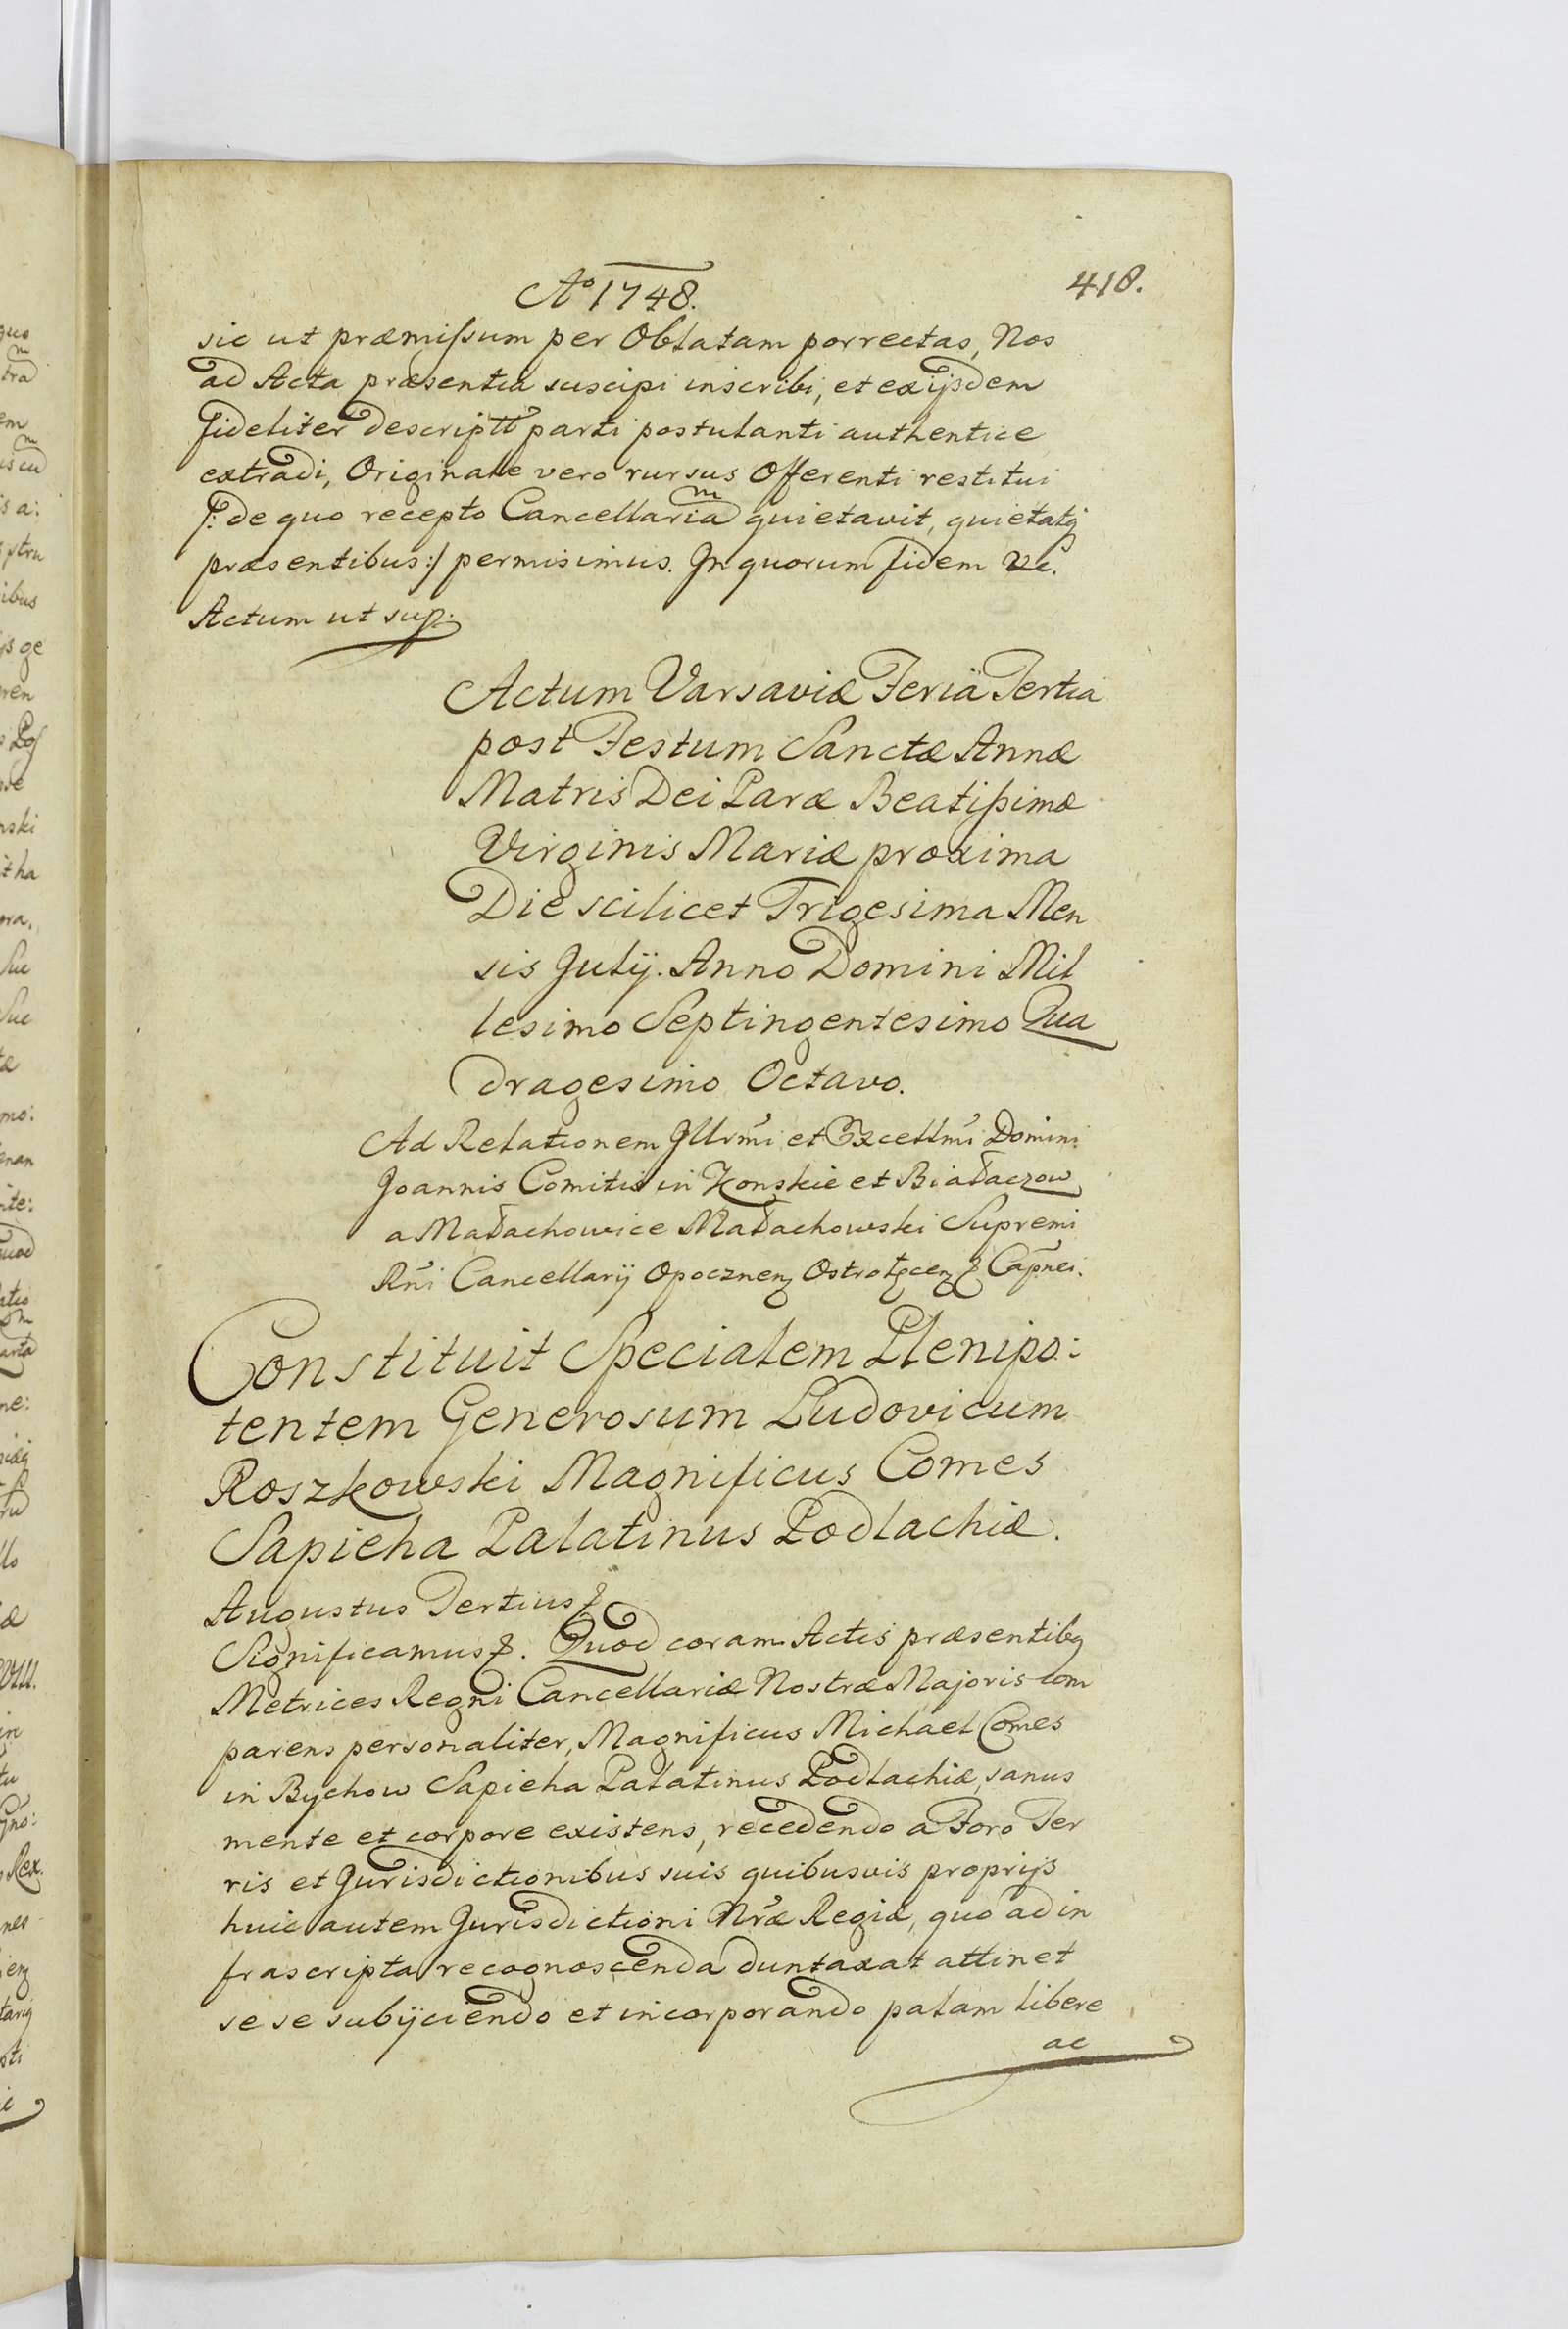 Aº 1748. 418.
sic ut præmissum per Oblatam porrectas, Nos
ad Acta præsentia suscipi inscribi, et ex ijsdem
fideliter descriptt parti postulanti authentice
extradi, Originale vero rursus Offerenti restitui
/: de quo recepto Cancellariam quietavit, quietatq
præsentibus :/ permisimus. In quorum fidem &c.
Actum ut sup:
Actum Varsaviæ Feria Tertia
post Festum Sanctæ Annæ
Matris Dei Paræ Beatissimæ
Virginis Mariæ proxima
Die scilicet Trigesima Men
sis Julij. Anno Domini Mil
lesimo Septingentesimo Qua
dragesimo Octavo.
Ad Relationem Illrmi et Excellmi Domini
Joannis Comitis in Konskie et Białaczow
a Małachowice Małachowski Supremi
Rni Cancellarij Opocznen Ostrołęcen & Capnei.
Constituit Specialem Plenipo:
tentem Generosum Ludovicum
Roszkowski Magnificus Comes
Sapieha Palatinus Podlachiæ.
Augustus Tertius &
Significamus &. Quod coram Actis præsentibq
Metrices Regni Cancellariæ Nostræ Majoris com
parens personaliter, Magnificus Michael Comes
in Bychow Sapieha Palatinus Podlachiæ, sanus
mente et corpore existens, recedendo a Foro Ter
ris et Jurisdictionibus suis quibusvis proprijs
huic autem Jurisdictioni Nræ Regiæ, quo ad in
frascripta recognoscenda duntaxat attinet
se se subijciendo et incorporando palam libere
ac